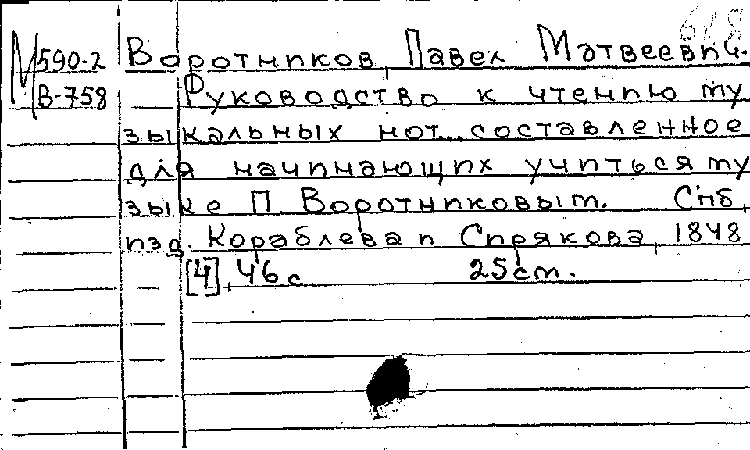 618
М 590-2
В-758
Воротников, Павел Матвеевич.
Руководство к чтению му
зыкальных нот, составленное
для начинающих учиться му
зыке П Воротниковым. Спб,
изд. Кораблева и Сирякова, 1848
[4], 46 с 25 см.